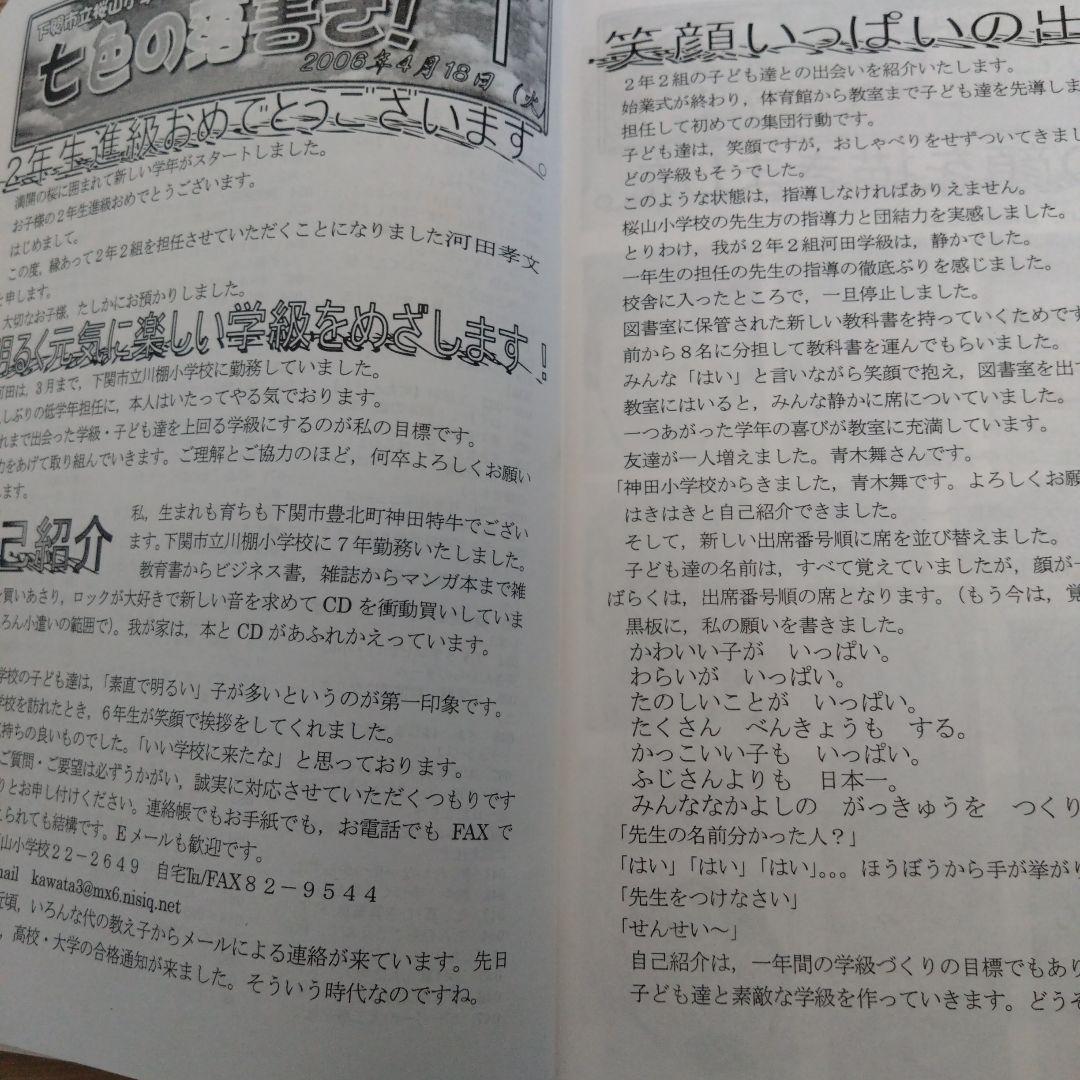 下関市立桜山小学
七色の落書き！
1
2006年4月18日（火
2年生進級おめでとうございます。
満開の桜に囲まれて新しい学年がスタートしました。
お子様の2年生進級おめでとうございます。
はじめまして。
この度，縁あって2年2組を担任させていただくことになりました河田孝文
を申します。
大切なお子様，たしかにお預かりしました。
明るく元気に楽しい学級をめざします！
河田は，3月まで，下関市立川棚小学校に勤務していました。
しぶりの低学年担任に，本人はいたってやる気でおります。
れまで出会った学級・子ども達を上回る学級にするのが私の目標です。
力をあげて取り組んでいきます。ご理解とご協力のほど，何卒よろしくお願い
します。
己紹介
私，生まれも育ちも下関市豊北町神田特牛でござい
ます。下関市立川棚小学校に7年勤務いたしました。
教育書からビジネス書，雑誌からマンガ本まで雑
を買いあさり，ロックが大好きで新しい音を求めてCDを衝動買いしていま
ろん小遣いの範囲で）。我が家は，本とCDがあふれかえっています。
学校の子ども達は，「素直で明るい」子が多いというのが第一印象です。
学校を訪れたとき，6年生が笑顔で挨拶をしてくれました。
気持ちの良いものでした。「いい学校に来たな」と思っております。
ご質問・ご要望は必ずうかがい，誠実に対応させていただくつもりです
りとお申し付けください。連絡帳でもお手紙でも，お電話でもFAXで
られても結構です。Eメールも歓迎です。
山小学校22－2649　自宅℡/FAX82－9544
mail　kawata3@mx6.nisiq.net
近頃，いろんな代の教え子からメールによる連絡が来ています。先日
，高校・大学の合格通知が来ました。そういう時代なのですね。
笑顔いっぱいの出
2年2組の子ども達との出会いを紹介いたします。
始業式が終わり，体育館から教室まで子ども達を先導しま
担任して初めての集団行動です。
子ども達は，笑顔ですが，おしゃべりをせずついてきまし
どの学級もそうでした。
このような状態は，指導しなければありえません。
桜山小学校の先生方の指導力と団結力を実感しました。
とりわけ，我が2年2組河田学級は，静かでした。
一年生の担任の先生の指導の徹底ぶりを感じました。
校舎に入ったところで，一旦停止しました。
図書室に保管された新しい教科書を持っていくためです
前から8名に分担して教科書を運んでもらいました。
みんな「はい」と言いながら笑顔で抱え，図書室を出て
教室にはいると，みんな静かに席についていました。
一つあがった学年の喜びが教室に充満しています。
友達が一人増えました。青木舞さんです。
「神田小学校からきました，青木舞です。よろしくお願
はきはきと自己紹介できました。
そして，新しい出席番号順に席を並び替えました。
子ども達の名前は，すべて覚えていましたが，顔が一
ばらくは，出席番号順の席となります。（もう今は，覚
黒板に，私の願いを書きました。
かわいい子が　いっぱい。
わらいが　いっぱい。
たのしいことが　いっぱい。
たくさん　べんきょうも　する。
かっこいい子も　いっぱい。
ふじさんよりも　日本一。
みんななかよしの　がっきゅうを　つくり
「先生の名前分かった人？」
「はい」「はい」「はい」。。。ほうぼうから手が挙がり
「先生をつけなさい」
「せんせい～」
自己紹介は，一年間の学級づくりの目標でもあり
子ども達と素敵な学級を作っていきます。どうぞ